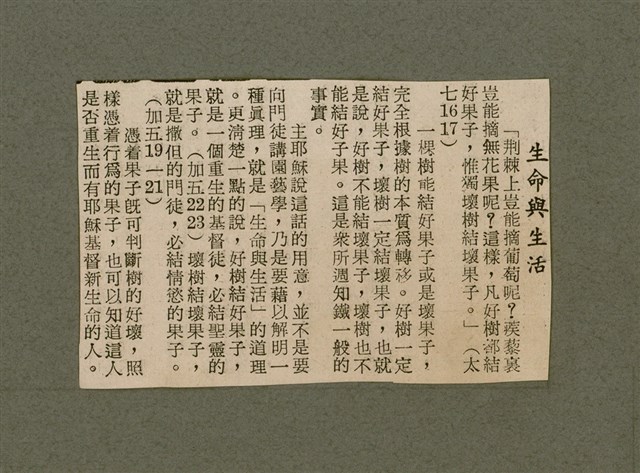 生命與生活
「荆棘上豈能摘葡萄呢？蒺藜裏
豈能摘無花果呢？這樣，凡好樹都結
好果子，惟獨壞樹結壞果子。」（太
七16 17）
一棵樹能結好果子或是壞果子，
完全根據樹的本質爲轉移。好樹一定
結好果子，壞樹一定結壞果子，也就
是說，好樹不能結壞果子，壞樹也不
能結好子果。這是衆所週知鐵一般的
事實。
主耶穌說這話的用意，並不是要
向門徒講園藝學，乃是要藉以解明一
種眞理，就是「生命與生活」的道理
。更淸楚一點的說，好樹結好果子，
就是一個重生的基督徒，必結聖靈的
果子。（加五22 23）壞樹結壞果子，
就是撒但的門徒，必結情慾的果子。
（加五19—21）
憑着果子旣可判斷樹的好壞，照
樣憑着行爲的果子，也可以知道這人
是否重生而有耶穌基督新生命的人。